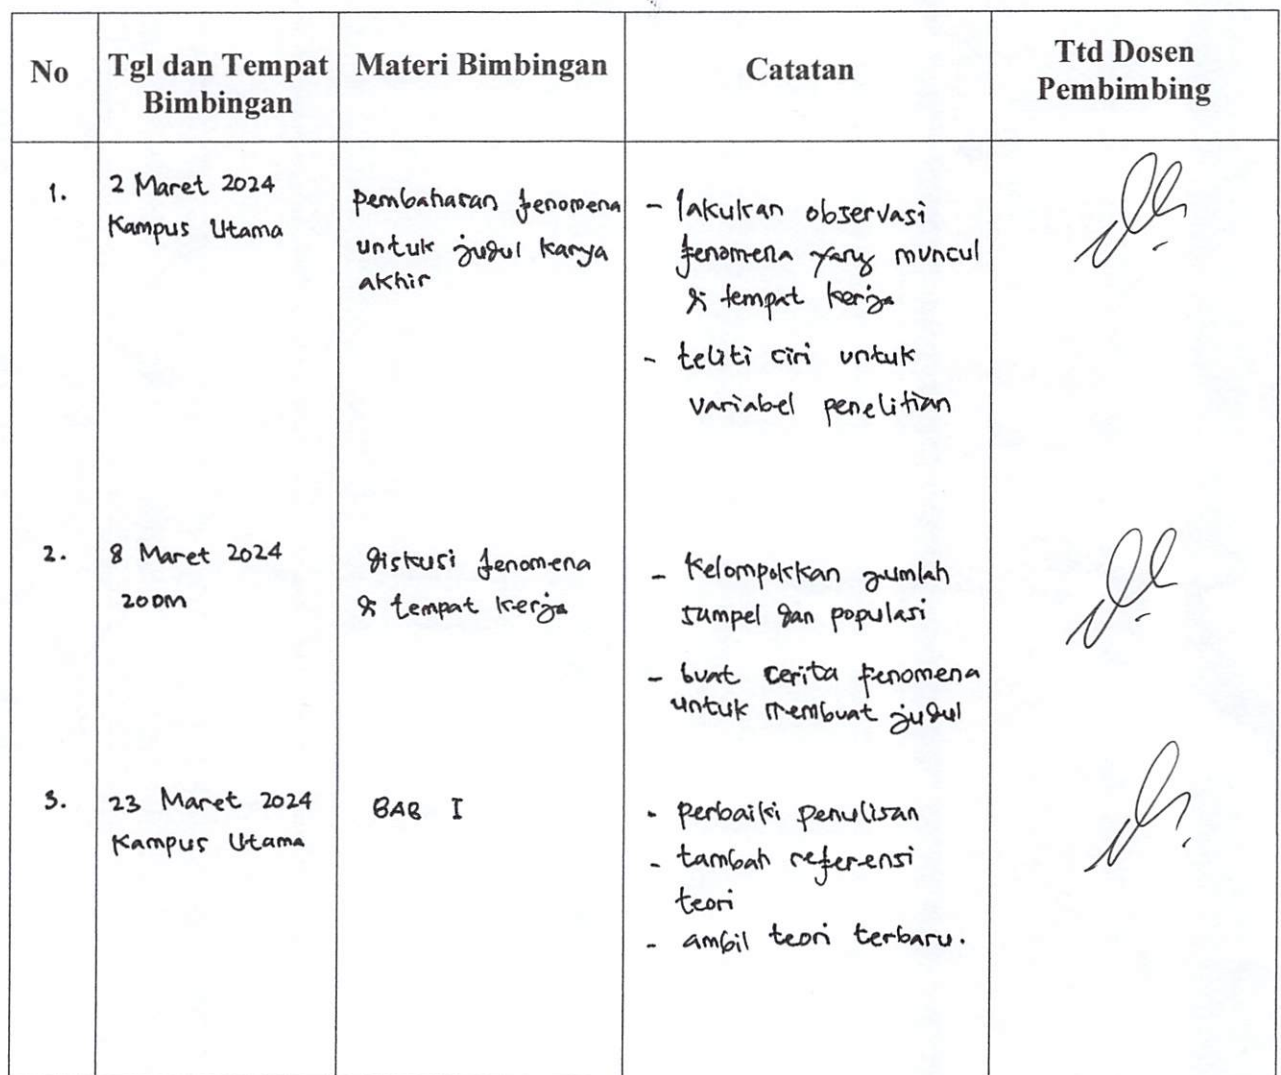 No
Tgl dan Tempat
Bimbingan
Materi Bimbingan
Catatan
Ttd Dosen
Pembimbing
1.
2 Maret 2024
Kampus Utama
pembahasan fenomena
untuk judul karya
akhir
- lakukan observasi
fenomena yang muncul
di tempat kerja
- teliti ciri untuk
variabel penelitian
2.
8 Maret 2024
zoom
diskusi fenomena
di tempat kerja
- kelompokkan jumlah
sumpel dan populasi
- buat cerita fenomena
untuk membuat judul
3.
23 Maret 2024
Kampus Utama
BAB I
- perbaiki penulisan
- tambah referensi
teori
- ambil teori terbaru.